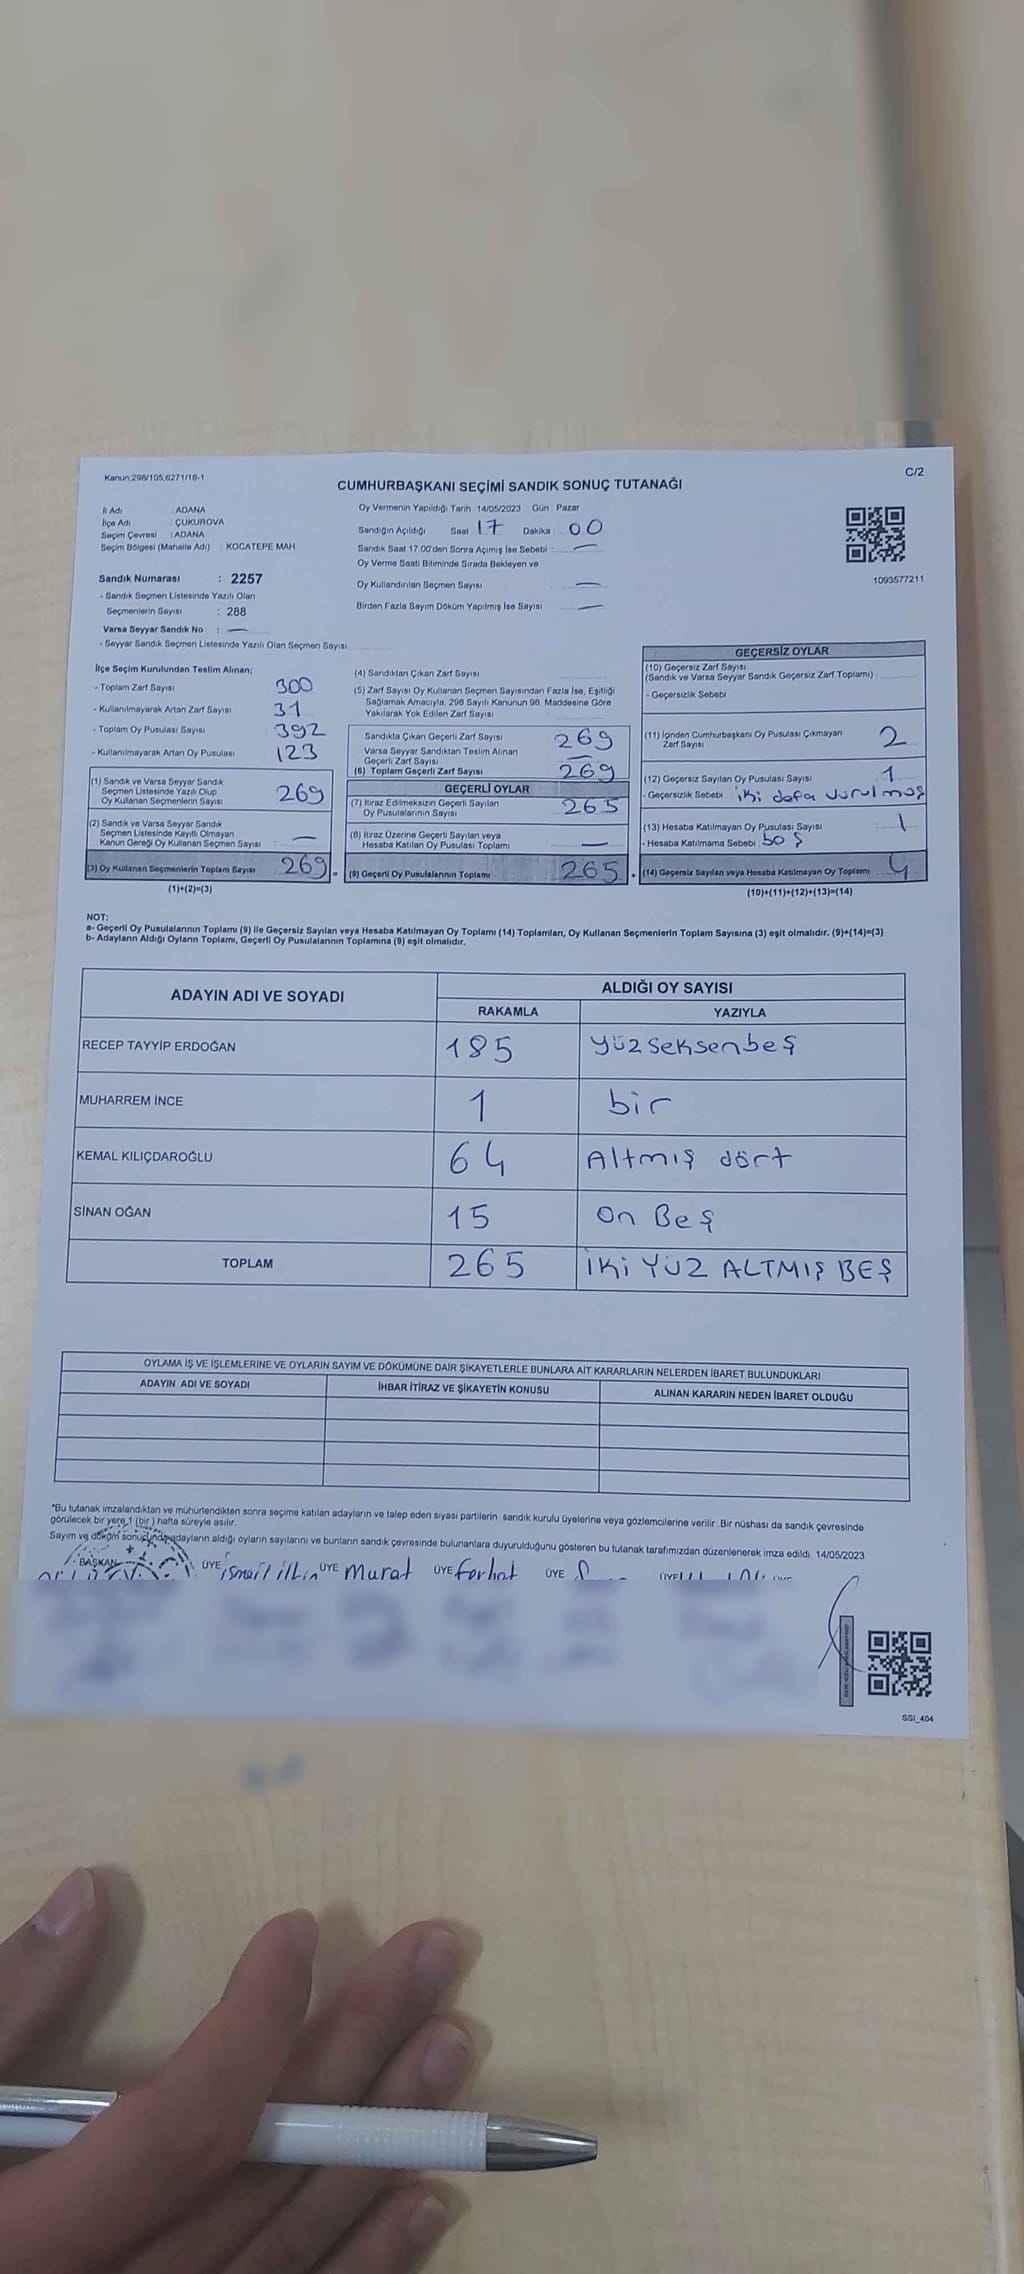 Kanun,298/105,6271/18-1
C/2
CUMHURBAŞKANI SEÇİMİ SANDIK SONUÇ TUTANAĞI
İl Adı : ADANA
İlçe Adı : ÇUKUROVA
Seçim Çevresi : ADANA
Seçim Bölgesi (Mahalle Adı) : KOCATEPE MAH
Sandık Numarası : 2257
- Sandık Seçmen Listesinde Yazılı Olan
Seçmenlerin Sayısı : 288
Varsa Seyyar Sandık No : —
- Seyyar Sandık Seçmen Listesinde Yazılı Olan Seçmen Sayısı
Oy Vermenin Yapıldığı Tarih :14/05/2023 Gün Pazar
Sandığın Açıldığı Saat 17 Dakika : 00
Sandık Saat 17.00'den Sonra Açımış İse Sebebi : —
Oy Verme Saati Bitiminde Sırada Bekleyen ve
Oy Kullandırılan Seçmen Sayısı —
Birden Fazla Sayım Döküm Yapılmış İse Sayısı —
1093577211
İlçe Seçim Kurulundan Teslim Alınan;
- Toplam Zarf Sayısı 300
- Kullanılmayarak Artan Zarf Sayısı 31
- Toplam Oy Pusulası Sayısı 392
- Kullanılmayarak Artan Oy Pusulası 123
(1) Sandık ve Varsa Seyyar Sandık
Seçmen Listesinde Yazılı Olup
Oy Kullanan Seçmenlerin Sayısı 269
(2) Sandık ve Varsa Seyyar Sandık
Seçmen Listesinde Kayıtlı Olmayan
Kanun Gereği Oy Kullanan Seçmen Sayısı : —
(3) Oy Kullanan Seçmenlerin Toplam Sayısı 269
(1)+(2)=(3)
(4) Sandıktan Çıkan Zarf Sayısı
(5) Zarf Sayısı Oy Kullanan Seçmen Sayısından Fazla İse, Eşitliği
Sağlamak Amacıyla, 298 Sayılı Kanunun 98. Maddesine Göre
Yakılarak Yok Edilen Zarf Sayısı
Sandıkta Çıkan Geçerli Zarf Sayısı 269
Varsa Seyyar Sandıktan Teslim Alınan
Geçerli Zarf Sayısı —
(6) Toplam Geçerli Zarf Sayısı 269
GEÇERLİ OYLAR
(7) İtiraz Edilmeksizin Geçerli Sayılan
Oy Pusulalarının Sayısı 265
(8) İtiraz Üzerine Geçerli Sayılan veya
Hesaba Katılan Oy Pusulası Toplamı —
(9) Geçerli Oy Pusulalarının Toplamı 265
GEÇERSİZ OYLAR
(10) Geçersiz Zarf Sayısı
(Sandık ve Varsa Seyyar Sandık Geçersiz Zarf Toplamı) :
- Geçersizlik Sebebi
(11) İçinden Cumhurbaşkanı Oy Pusulası Çıkmayan
Zarf Sayısı 2
(12) Geçersiz Sayılan Oy Pusulası Sayısı 1
- Geçersizlik Sebebi iki dafa vurulmuş
(13) Hesaba Katılmayan Oy Pusulası Sayısı : 1
- Hesaba Katılmama Sebebi boş
(14) Geçersiz Sayılan veya Hesaba Katılmayan Oy Toplamı 4
(10)+(11)+(12)+(13)=(14)
NOT:
a- Geçerli Oy Pusulalarının Toplamı (9) ile Geçersiz Sayılan veya Hesaba Katılmayan Oy Toplamı (14) Toplamları, Oy Kullanan Seçmenlerin Toplam Sayısına (3) eşit olmalıdır. (9)+(14)=(3)
b- Adayların Aldığı Oyların Toplamı, Geçerli Oy Pusulalarının Toplamına (9) eşit olmalıdır.
ADAYIN ADI VE SOYADI ALDIĞI OY SAYISI
RAKAMLA YAZIYLA
RECEP TAYYİP ERDOĞAN 185 yüzseksenbeş
MUHARREM İNCE 1 bir
KEMAL KILIÇDAROĞLU 64 Altmış dört
SİNAN OĞAN 15 on Beş
TOPLAM 265 İKİ YÜZ ALTMIŞ BEŞ
OYLAMA İŞ VE İŞLEMLERİNE VE OYLARIN SAYIM VE DÖKÜMÜNE DAİR ŞİKAYETLERLE BUNLARA AİT KARARLARIN NELERDEN İBARET BULUNDUKLARI
ADAYIN ADI VE SOYADI İHBAR İTİRAZ VE ŞİKAYETİN KONUSU ALINAN KARARIN NEDEN İBARET OLDUĞU
*Bu tutanak imzalandıktan ve mühürlendikten sonra seçime katılan adayların ve talep eden siyasi partilerin sandık kurulu üyelerine veya gözlemcilerine verilir. Bir nüshası da sandık çevresinde
görülecek bir yere 1 (bir) hafta süreyle asılır.
Sayım ve döküm sonucunda adayların aldığı oyların sayılarını ve bunların sandık çevresinde bulunanlara duyurulduğunu gösteren bu tutanak tarafımızdan düzenlenerek imza edildi. 14/05/2023
BAŞKAN ÜYE ismail iltin ÜYE Murat ÜYE Ferhat ÜYE ÜYE
SSI_404